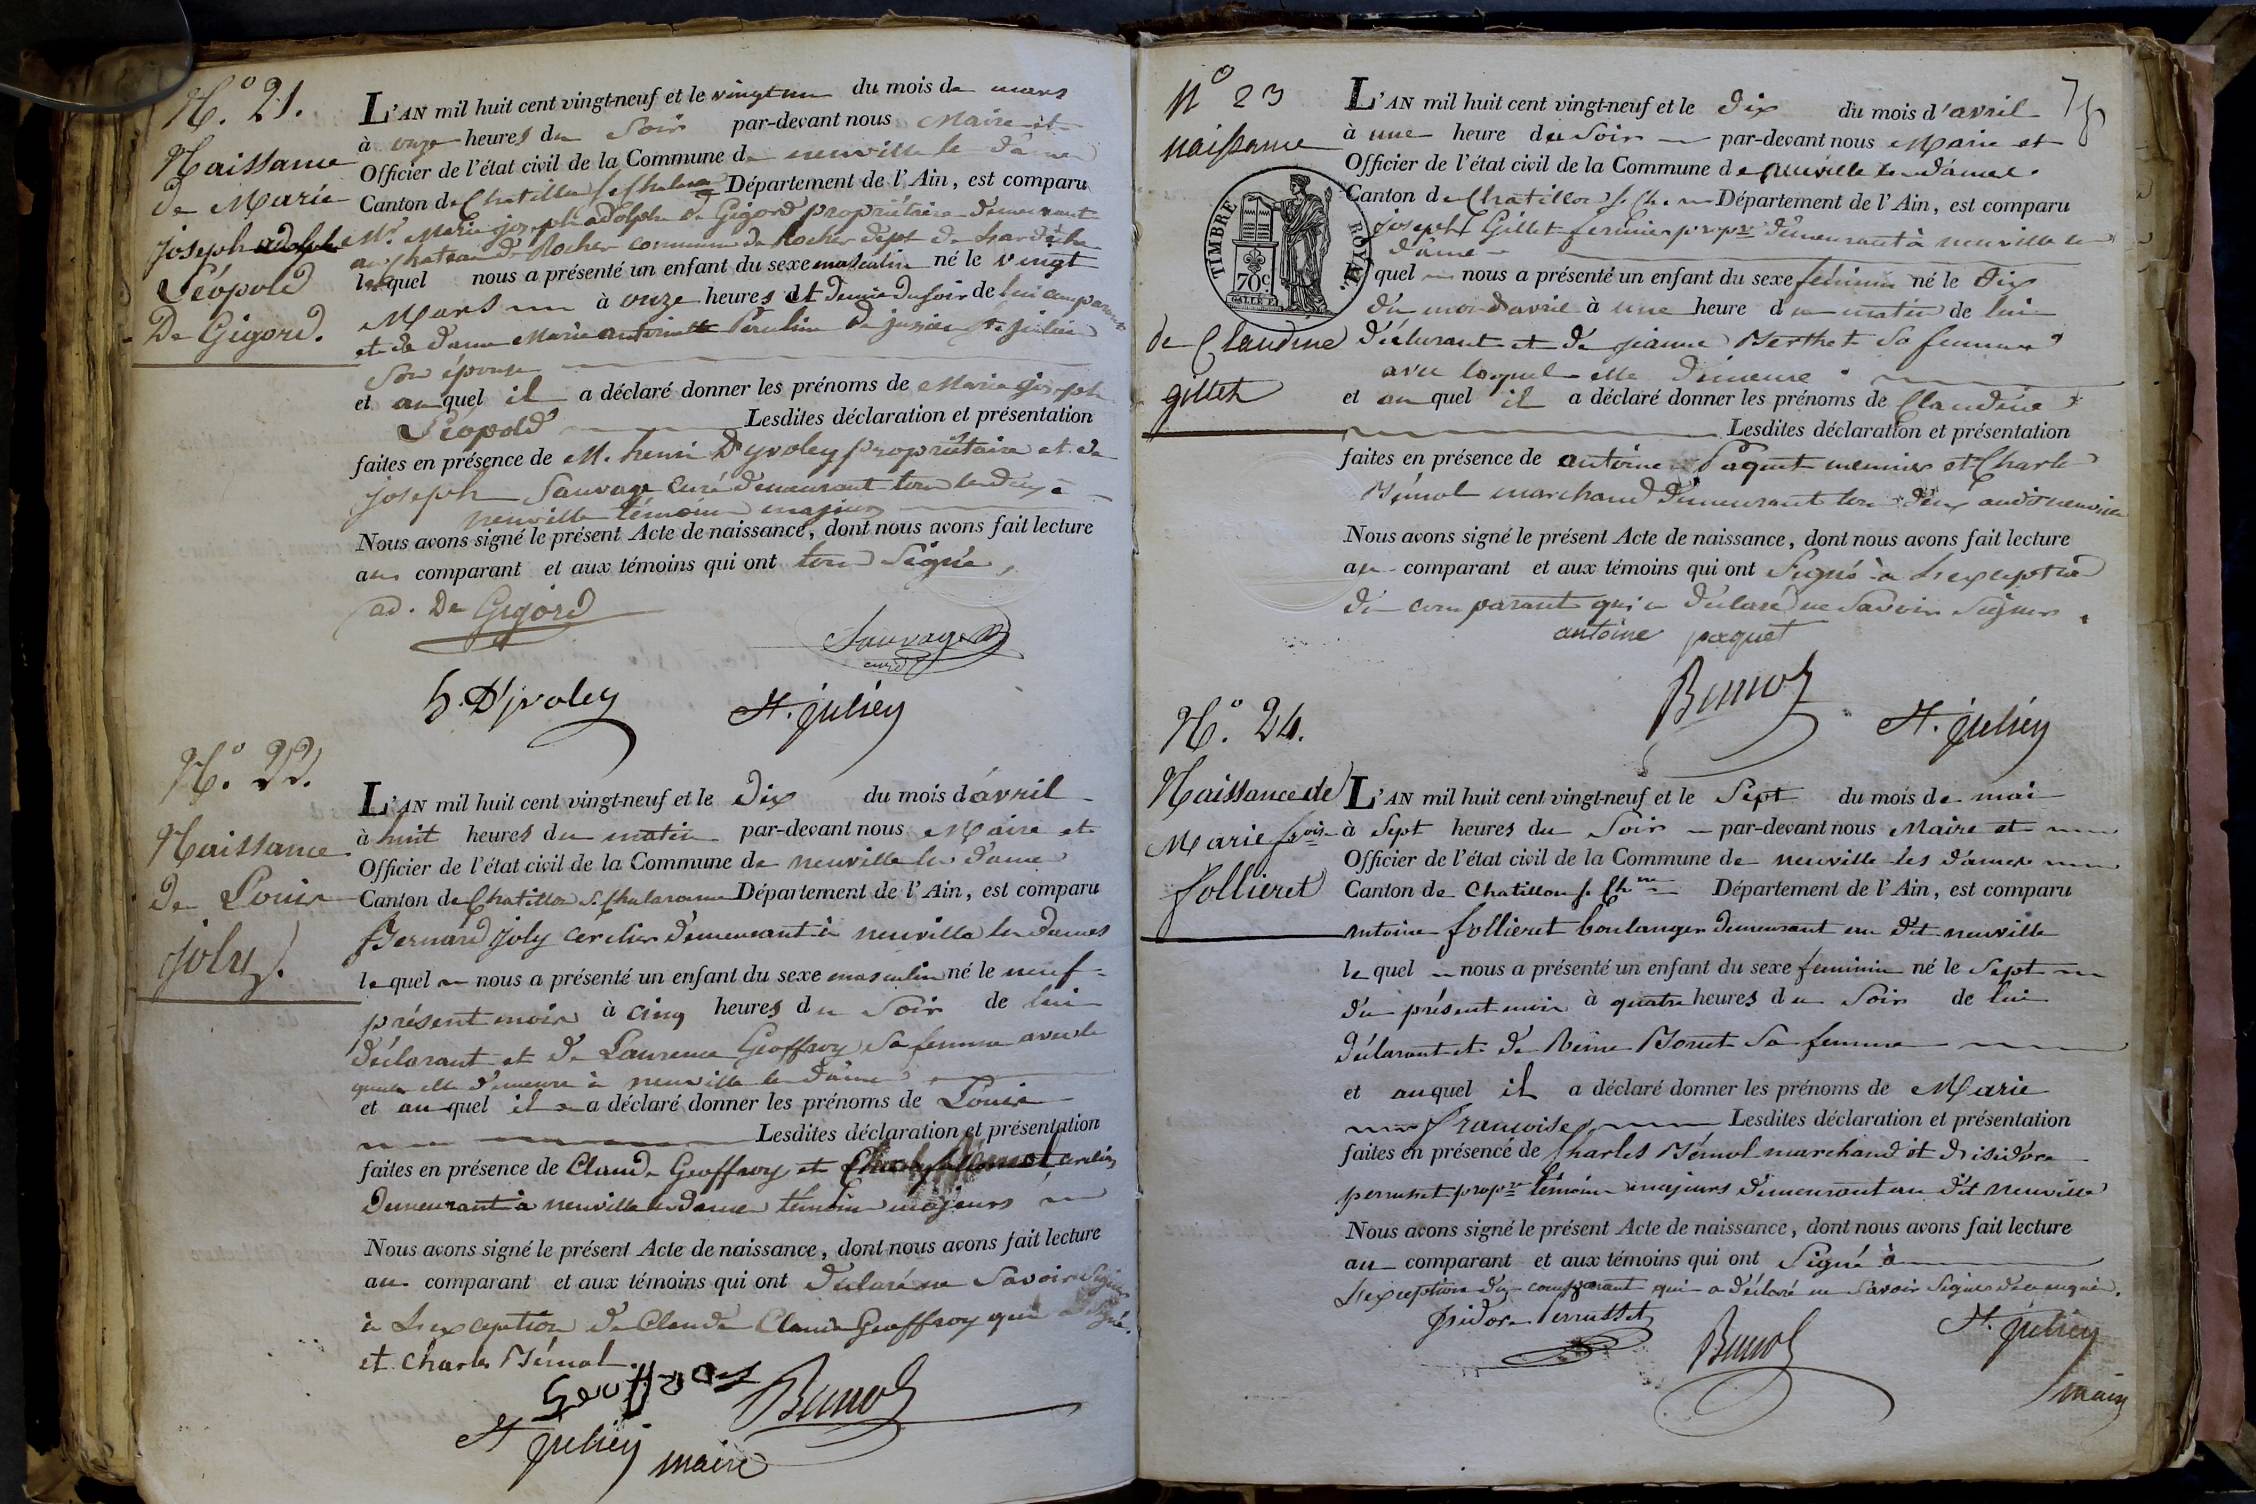 N.° 21.
Naissance
de Marie
joseph adolphe
Léopold
De Gigord.
L'AN mil huit cent vingt-neuf et le vingt un du mois de mars
à onze heures du Soir par-devant nous Maire et
Officier de l'état civil de la Commune de neuville les dames
Canton de Chatillon s. Chalar.ne Département de l'Ain, est comparu
Mr. Marie joseph adolphe de Gigord propriétaire demeurant
au chateau de Rocher commune de Rocher dépt de Lardèche
lequel nous a présenté un enfant du sexe masculin né le vingt
Mars à onze heures et Demie du soir de lui comparant
et de dame Marie antoinette de jussieu St. julien
Son épouse
et auquel il a déclaré donner les prénoms de Marie joseph
Léopold Lesdites déclaration et présentation
faites en présence de M. henri D'yvoley propriétaire et de
joseph Sauvage Curé demeurant tous les deux à
neuville témoins majeurs
Nous avons signé le présent Acte de naissance, dont nous avons fait lecture
au comparant et aux témoins qui ont tous Signé,
ad. De Gigord
Sauvage
curé
h. D'yvoley St. julien
N.° 22.
Naissance
de Louis
joly.
L'AN mil huit cent vingt-neuf et le Dix du mois d'avril
à huit heures du matin par-devant nous Maire et
Officier de l'état civil de la Commune de neuville les dames
Canton de Chatillon s. Chalaronne Département de l'Ain, est comparu
Bernard joly cerclier demeurant à neuville les dames
lequel nous a présenté un enfant du sexe masculin né le neuf
présent mois à cinq heures du Soir de lui
déclarant et de Laurence Geoffroy sa femme avec le
quel elle demeure à neuville les dames
et auquel il a déclaré donner les prénoms de Louis
Lesdites déclaration et présentation
faites en présence de Claude Geoffroy et cerclier
Demeurant à neuville les dames témoins majeurs
Nous avons signé le présent Acte de naissance, dont nous avons fait lecture
au comparant et aux témoins qui ont déclaré ne Savoir Signer
à Lexception de Claude Claude Geoffroy qui a signé.
et Charles Bémol.
Geoffroy Bemol
St julien maire
78
N° 23
naissance
de Claudine
gillet
TIMBRE ROYAL.
70c
L'AN mil huit cent vingt-neuf et le dix du mois d'avril
à une heure du Soir par-devant nous Maire et
Officier de l'état civil de la Commune de neuville les dames.
Canton de Chatillon s. Ch. Département de l'Ain, est comparu
joseph Gillet fermier propre demeurant à neuville les
dames
quel nous a présenté un enfant du sexe féminin né le dix
du mois d'avril à une heure du matin de lui
déclarant et de jeanne Berthet Sa femme
avec lequel elle demeure.
et auquel il a déclaré donner les prénoms de Claudine
Lesdites déclaration et présentation
faites en présence de antoine Paquet meunier et Charle
Bémol marchand demeurant tous deux audit neuville
Nous avons signé le présent Acte de naissance, dont nous avons fait lecture
au comparant et aux témoins qui ont Signé à Lexception
du comparant qui a déclaré ne Savoir Signer.
antoine paquet
Bemol
St. julien
N.° 24.
Naissance de
Marie f.oise
follieret
L'AN mil huit cent vingt-neuf et le Sept du mois de mai
à Sept heures du Soir par-devant nous Maire et
Officier de l'état civil de la Commune de neuville les dames
Canton de Chatillon s. Ch.ne Département de l'Ain, est comparu
antoine follieret boulanger demeurant au dit neuville
lequel nous a présenté un enfant du sexe feminin né le Sept
du présent mois à quatre heures du Soir de lui
déclarant et de Reine Bonet Sa femme
et auquel il a déclaré donner les prénoms de Marie
francoise Lesdites déclaration et présentation
faites en présence de Charles Bémol marchand et d'isidore
perrusset propre témoins majeurs demeurant au dit neuville
Nous avons signé le présent Acte de naissance, dont nous avons fait lecture
au comparant et aux témoins qui ont Signé à
Lexception du comparant qui a déclaré ne Savoir Signer de ce requis.
Isidore Perrusset
Bemol
St. julien
maire